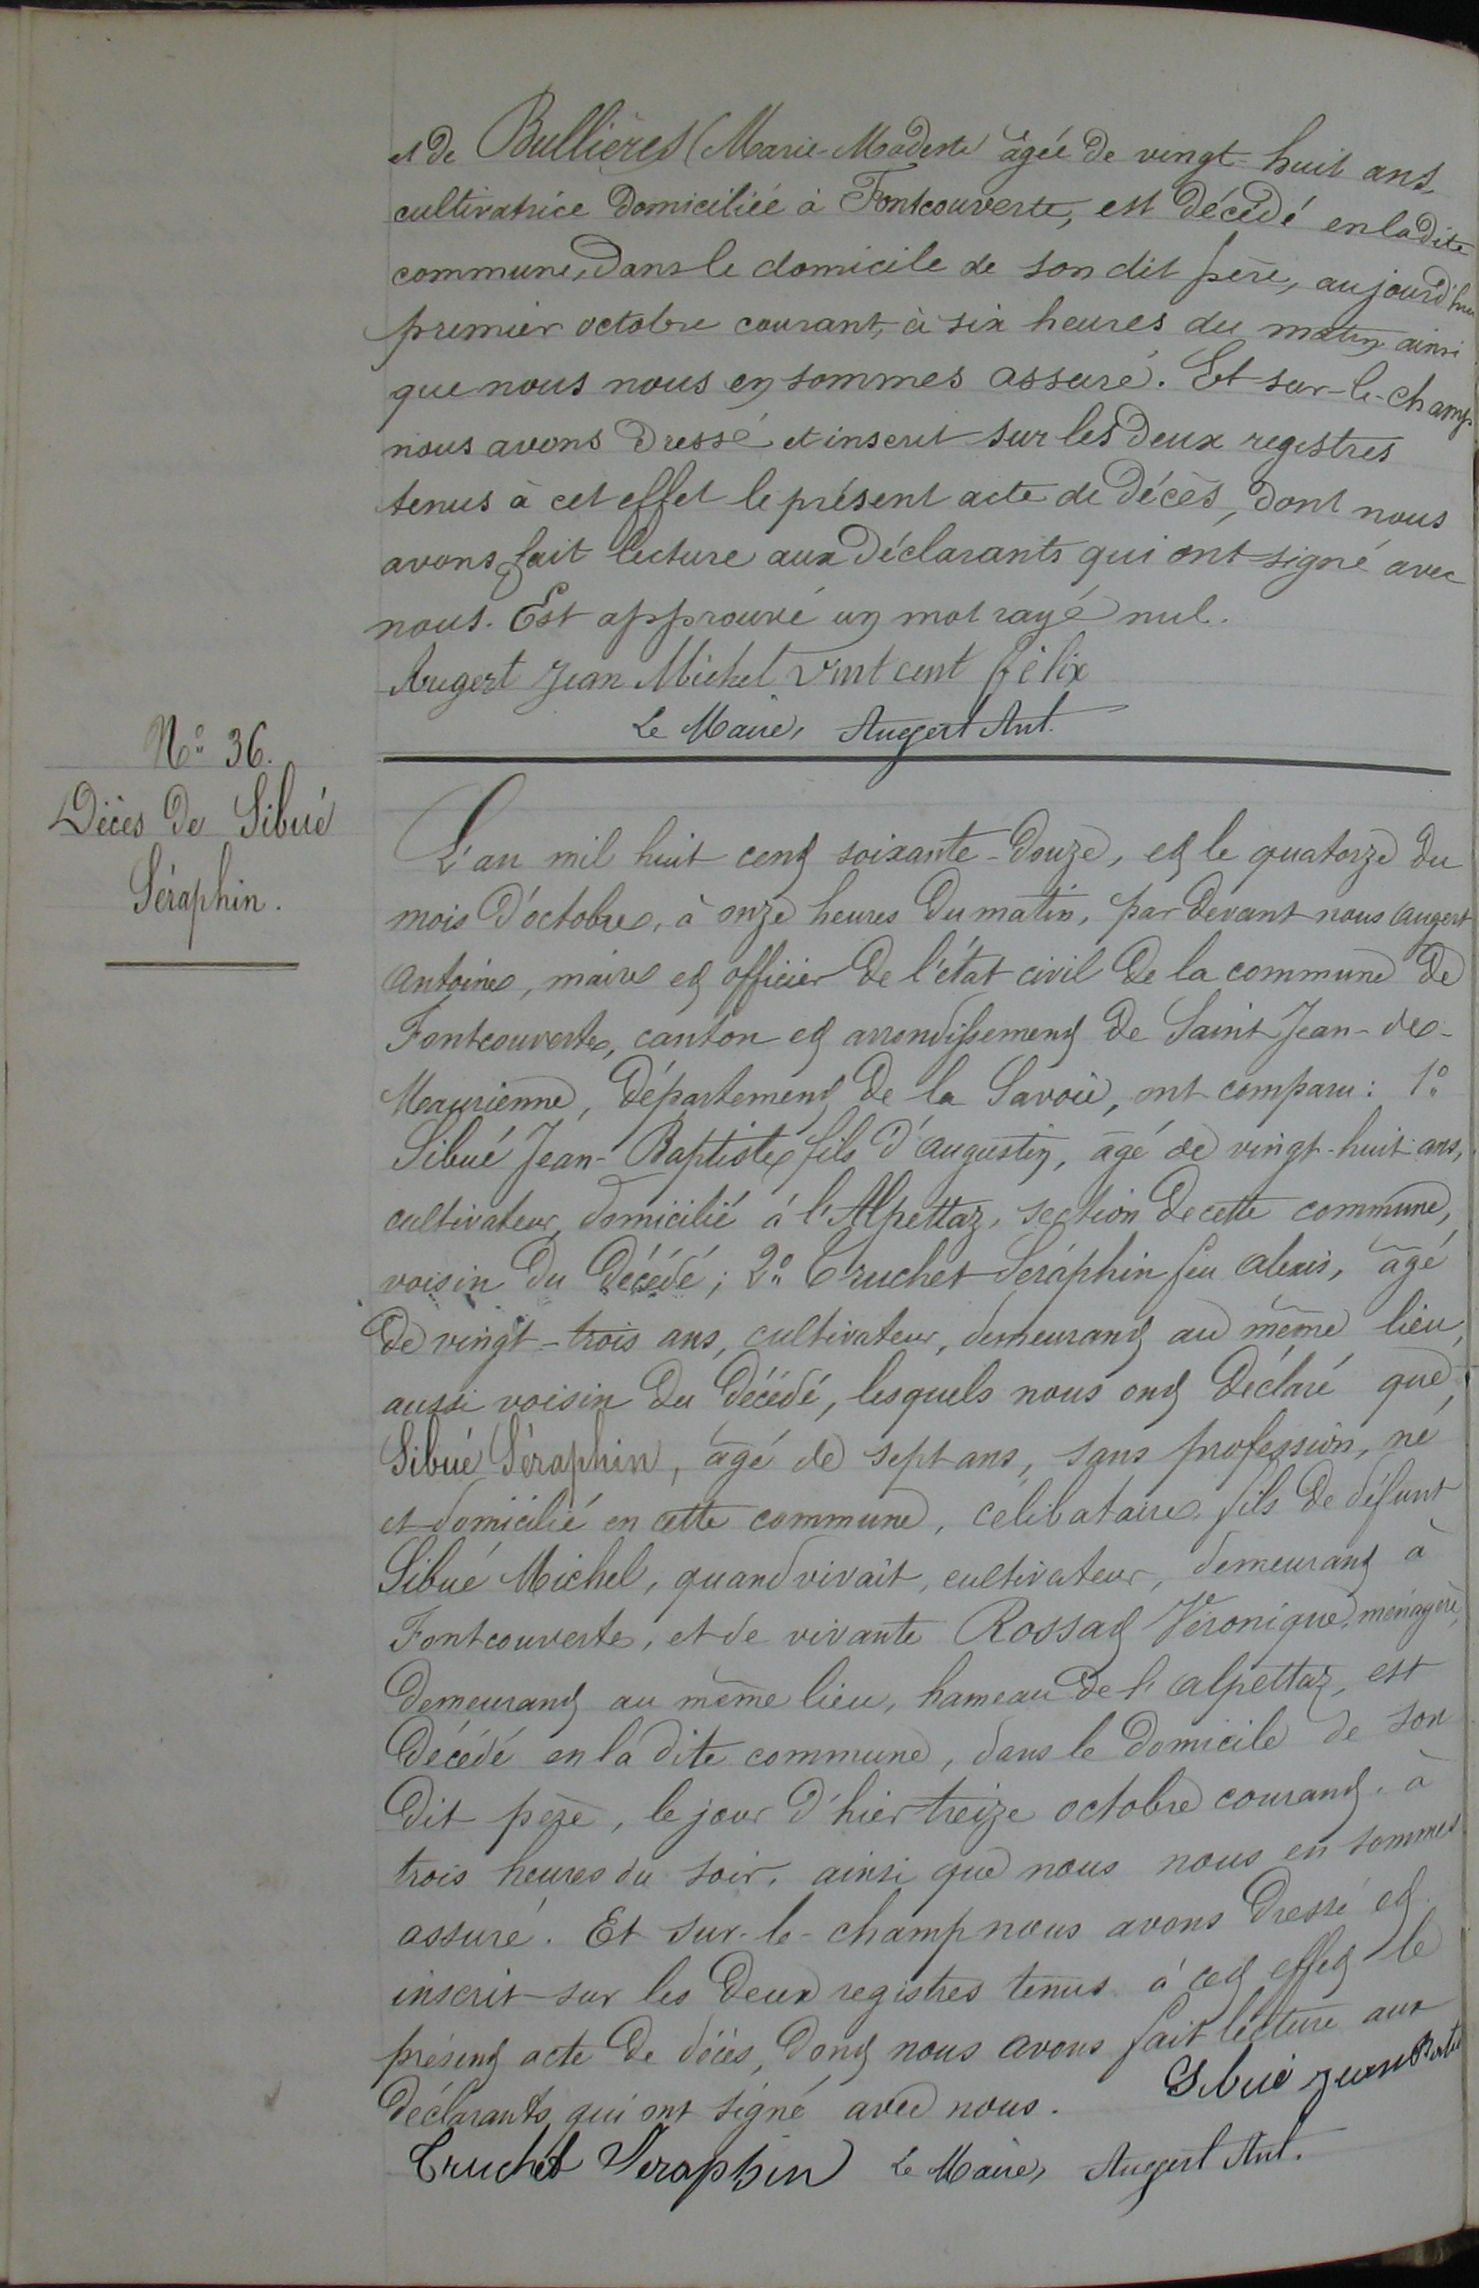 et de Bullières (Marie-Modeste âgée de vingt-huit ans,
cultivatrice domiciliée à Fontcouverte, est décédé en la dite
commune, dans le domicile de son dit père, aujourd'hui
premier octobre courant, à six heures du matin ainsi
que nous nous en sommes assuré. Et sur-le-champ
nous avons dressé et inscrit sur les deux registres
tenus à cet effet le présent acte de décès, dont nous
avons fait lecture aux déclarants qui ont signé avec
nous. Est approuvé un mot rayé nul.
Augert Jean Michel Vint cent félix
Le Maire, Augert Ant.
N° 36.
Décès de Sibué
Séraphin.
L'an mil huit cent soixante-douze, et le quatorze du
mois d'octobre, à onze heures du matin, par devant nous Augert
Antoine, maire et officier de l'état civil de la commune de
Fontcouverte, canton et arrondissement de Saint Jean-de-
Maurienne, département de la Savoie, ont comparu: 1°
Sibué Jean-Baptiste fils d'Augustin, âgé de vingt-huit ans,
cultivateur, domicilié à l'Alpettaz, section de cette commune,
voisin du décédé; 2° Cruchet Séraphin feu Alexis, âgé
de vingt-trois ans, cultivateur, demeurant au même lieu,
aussi voisin du décédé, lesquels nous ont déclaré que,
Sibué Séraphin, âgé de sept ans, sans profession, né
et domicilié en cette commune, célibataire, fils de défunt
Sibué Michel, quand vivait, cultivateur, demeurant à
Fontcouverte, et de vivante Rossat Véronique, ménagère,
demeurant au même lieu, hameau de l'Alpettaz, est
décédé en la dite commune, dans le domicile de son
dit père, le jour d'hier treize octobre courant, à
trois heures du soir, ainsi que nous nous en sommes
assuré. Et sur-le-champ nous avons dressé et
inscrit sur les deux registres tenus à cet effet le
présent acte de décès, dont nous avons fait lecture aux
déclarants qui ont signé avec nous. Sibué Jean Batis
Cruchet Seraphin Le Maire, Augert Ant.